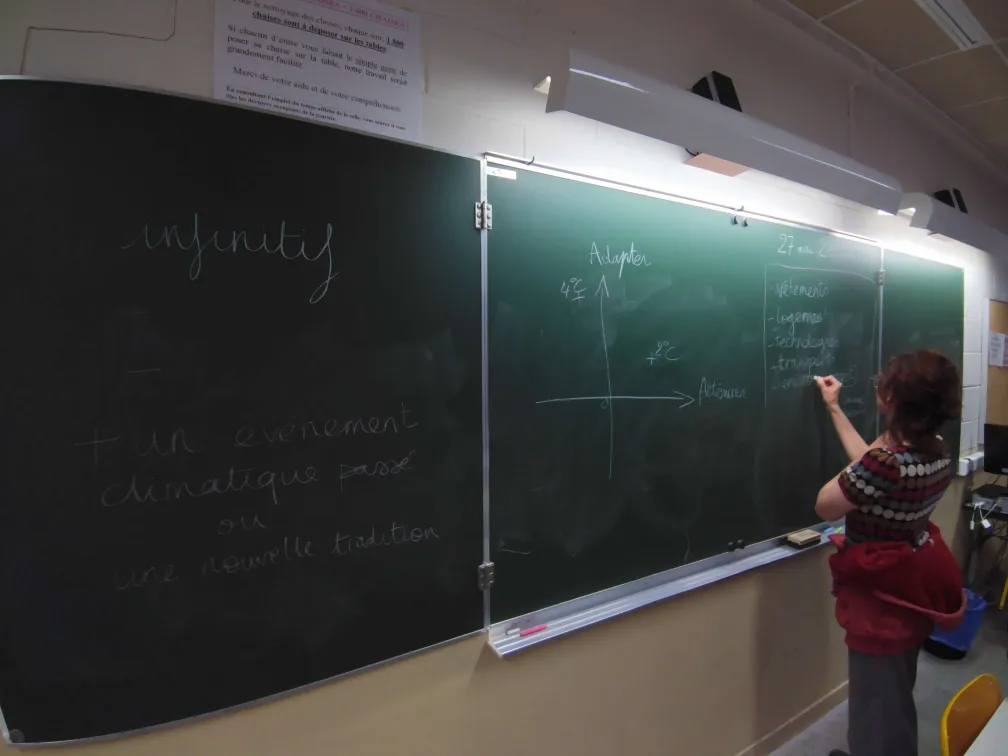 Pour le nettoyage des classes, chaque soir, 1 800
chaises sont à déposer sur les tables
Si chacun d'entre vous faisait le simple geste de
poser sa chaise sur la table, notre travail serait
grandement facilité
Merci de votre aide et de votre compréhension
En consultant l'emploi du temps affiché de la salle, vous saurez si vous
êtes les derniers occupants de la journée.
infinitif
+ un évènement
climatique passé
ou
une nouvelle tradition
Adapter
4°C
+2°C
Atténuer
27
-vêtements
-logement
-technologies
-transports